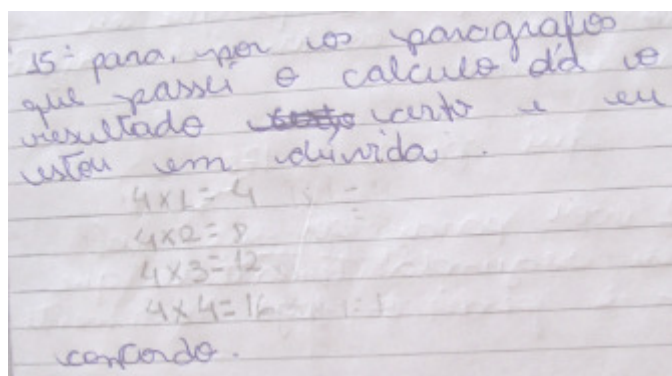 15- para. por os paragrafos
que passei o calculo dá o
resultado certo e eu
estou em dúvida.
4x1=4
4x2=8
4x3=12
4x4=16
concordo.